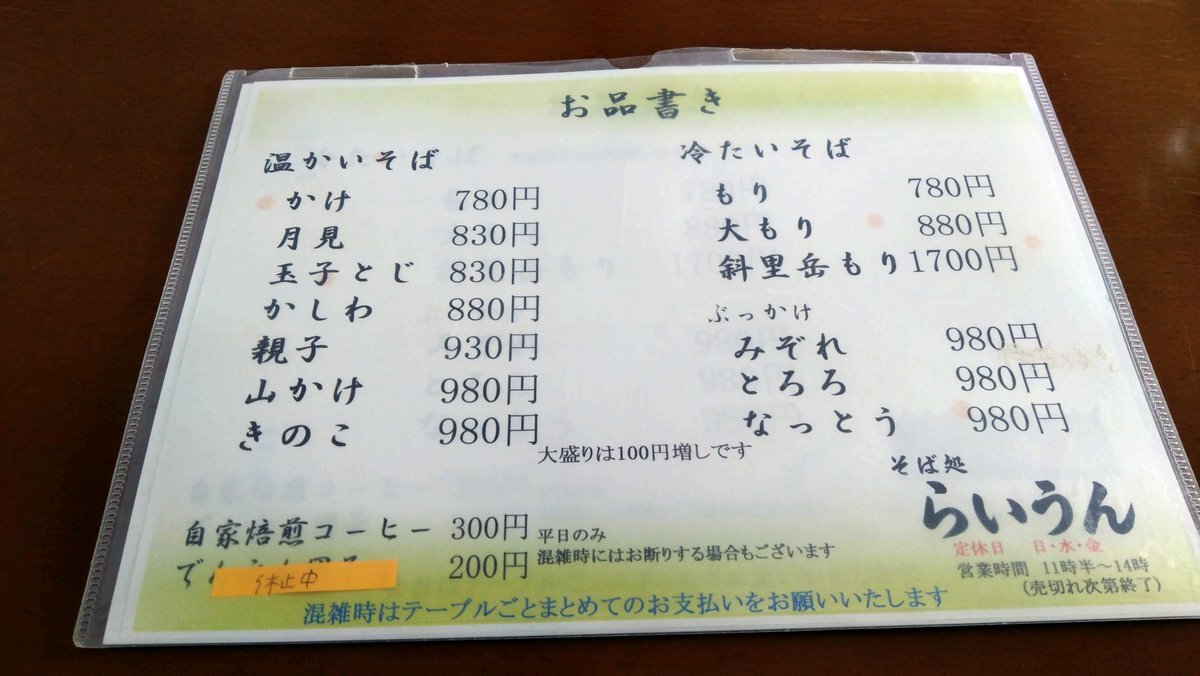 お品書き
温かいそば
かけ 780円
月見 830円
玉子とじ 830円
かしわ 880円
親子 930円
山かけ 980円
きのこ 980円
冷たいそば
もり 780円
大もり 880円
斜里岳もり 1700円
ぶっかけ
みぞれ 980円
とろろ 980円
なっとう 980円
大盛りは100円増しです
自家焙煎コーヒー 300円 平日のみ
混雑時にはお断りする場合もございます
200円
休止中
混雑時はテーブルごとまとめてのお支払いをお願いいたします
そば処
らいうん
定休日 日・水・金
営業時間 11時半～14時
(売切れ次第終了)